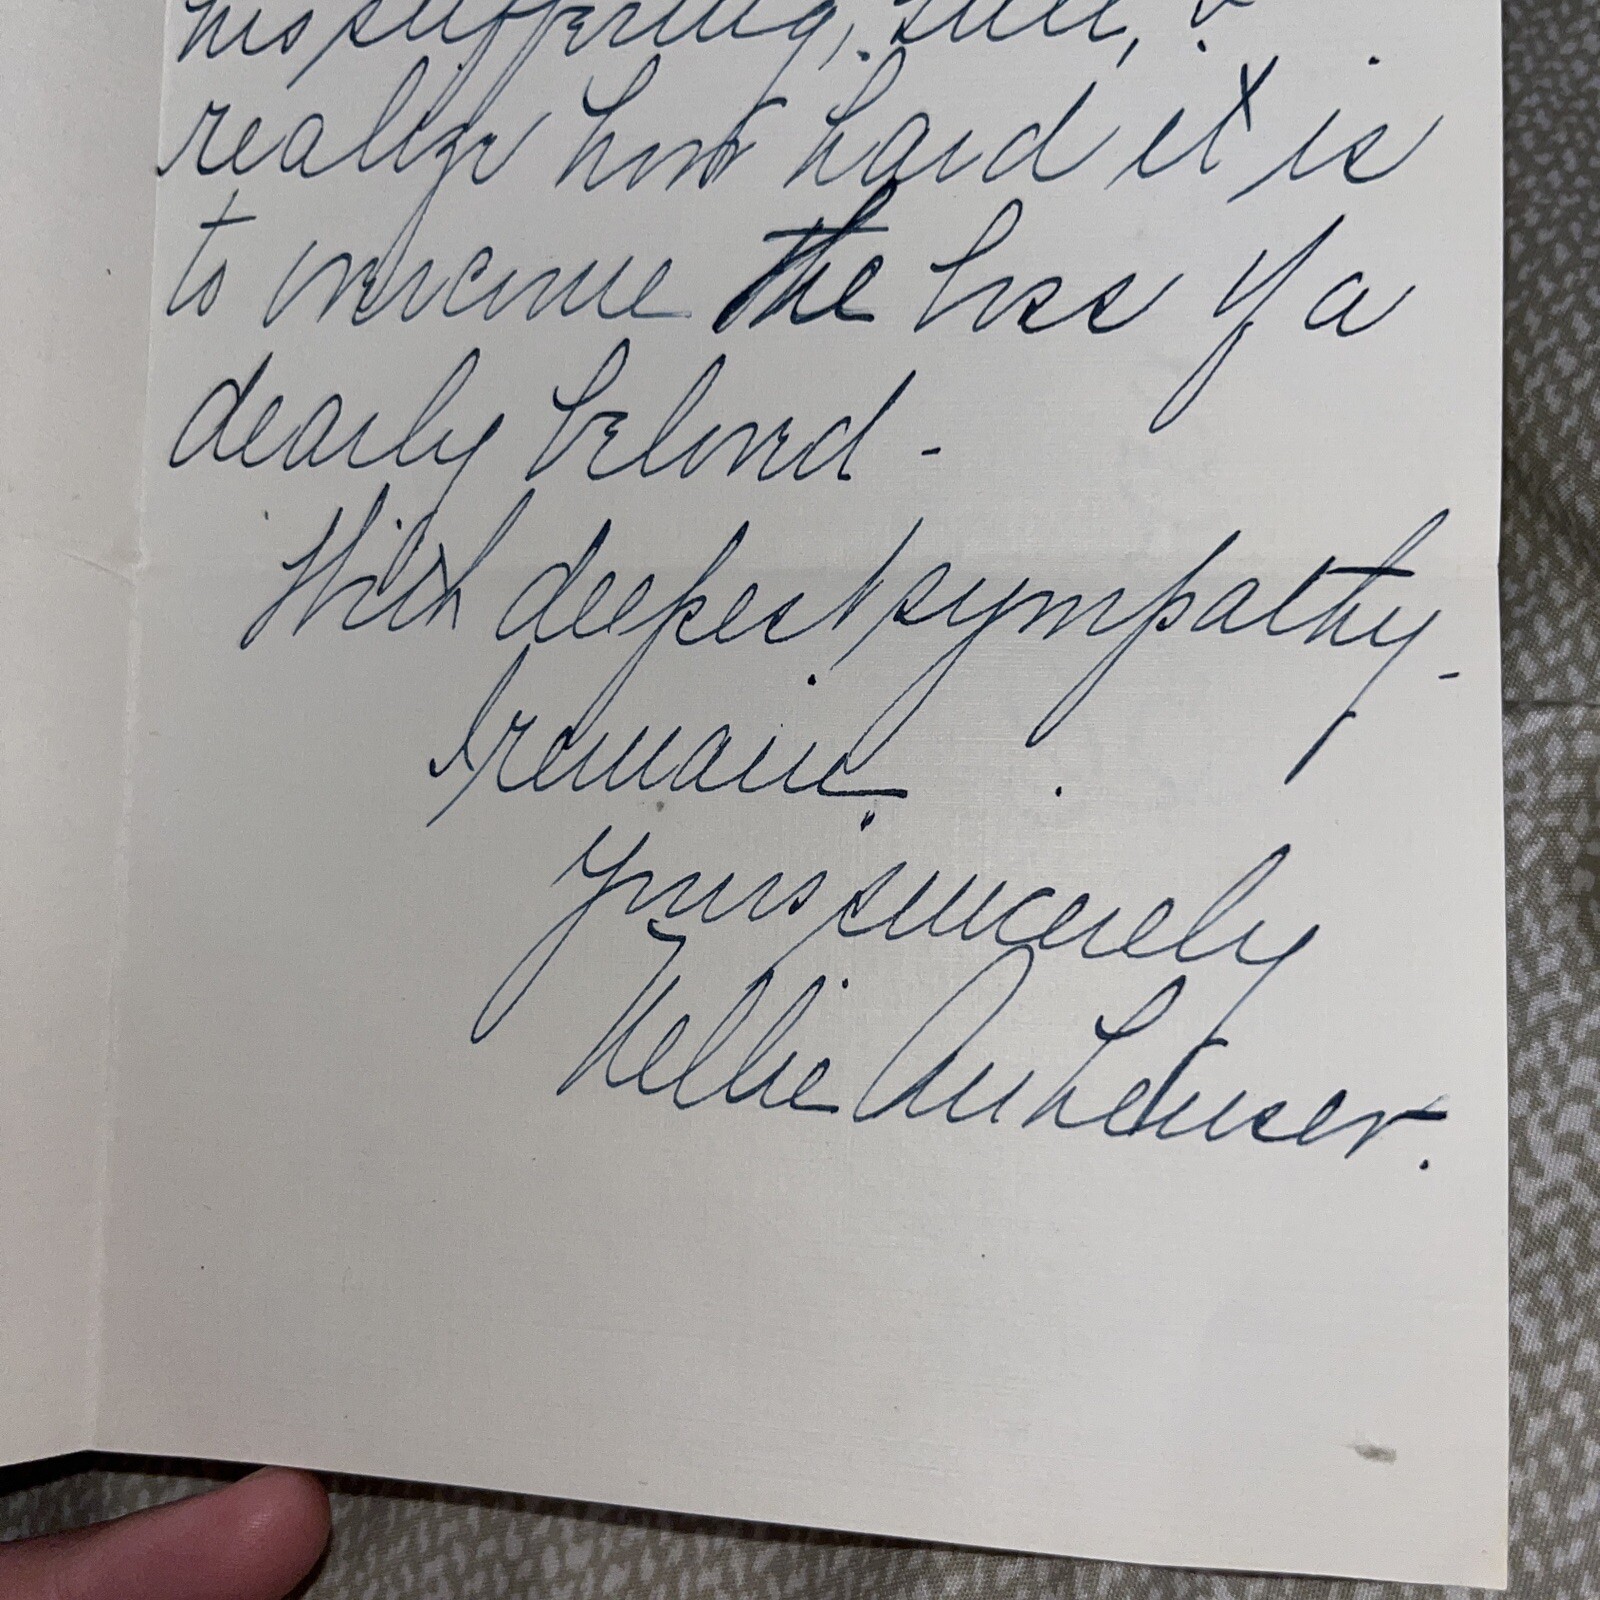 his suffering, still, I
realize how hard it is
to overcome the loss of a
dearly beloved -
With deepest sympathy -
I remain
Yours sincerely
Nellie Anheuser.